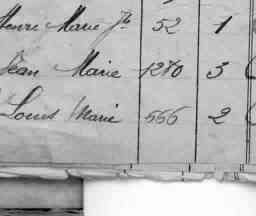 Henri Marie Jh 52 1
Jean Marie 1270 3
Louis Marie 566 2